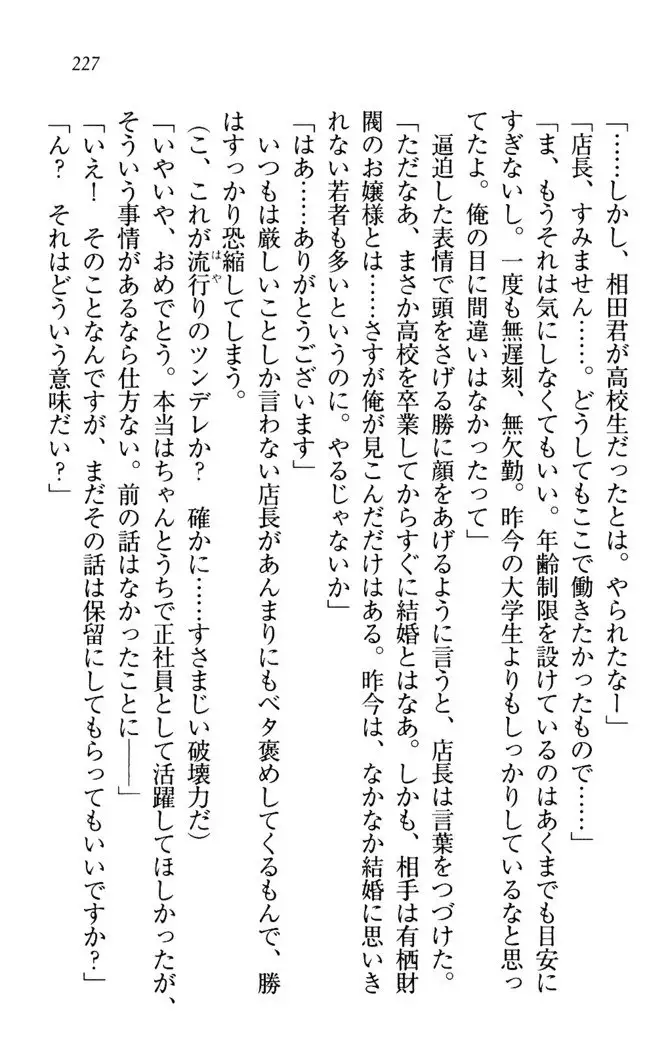 227
「……しかし、相田君が高校生だったとは。やられたなー」
「店長、すみません……。どうしてもここで働きたかったもので……」
「ま、もうそれは気にしなくてもいい。年齢制限を設けているのはあくまでも目安に
すぎないし。一度も無遅刻、無欠勤。昨今の大学生よりもしっかりしているなと思っ
てたよ。俺の目に間違いはなかったって」
　逼迫した表情で頭をさげる勝に顔をあげるように言うと、店長は言葉をつづけた。
「ただなあ、まさか高校を卒業してからすぐに結婚とはなあ。しかも、相手は有栖財
閥のお嬢様とは……さすが俺が見こんだだけはある。昨今は、なかなか結婚に思いき
れない若者も多いというのに。やるじゃないか」
「はあ……ありがとうございます」
　いつもは厳しいことしか言わない店長があんまりにもベタ褒めしてくるもんで、勝
はすっかり恐縮してしまう。
（こ、これが流行りのツンデレか？　確かに……すさまじい破壊力だ）
「いやいや、おめでとう。本当はちゃんとうちで正社員として活躍してほしかったが、
そういう事情があるなら仕方ない。前の話はなかったことに――」
「いえ！　そのことなんですが、まだその話は保留にしてもらってもいいですか？」
「ん？　それはどういう意味だい？」